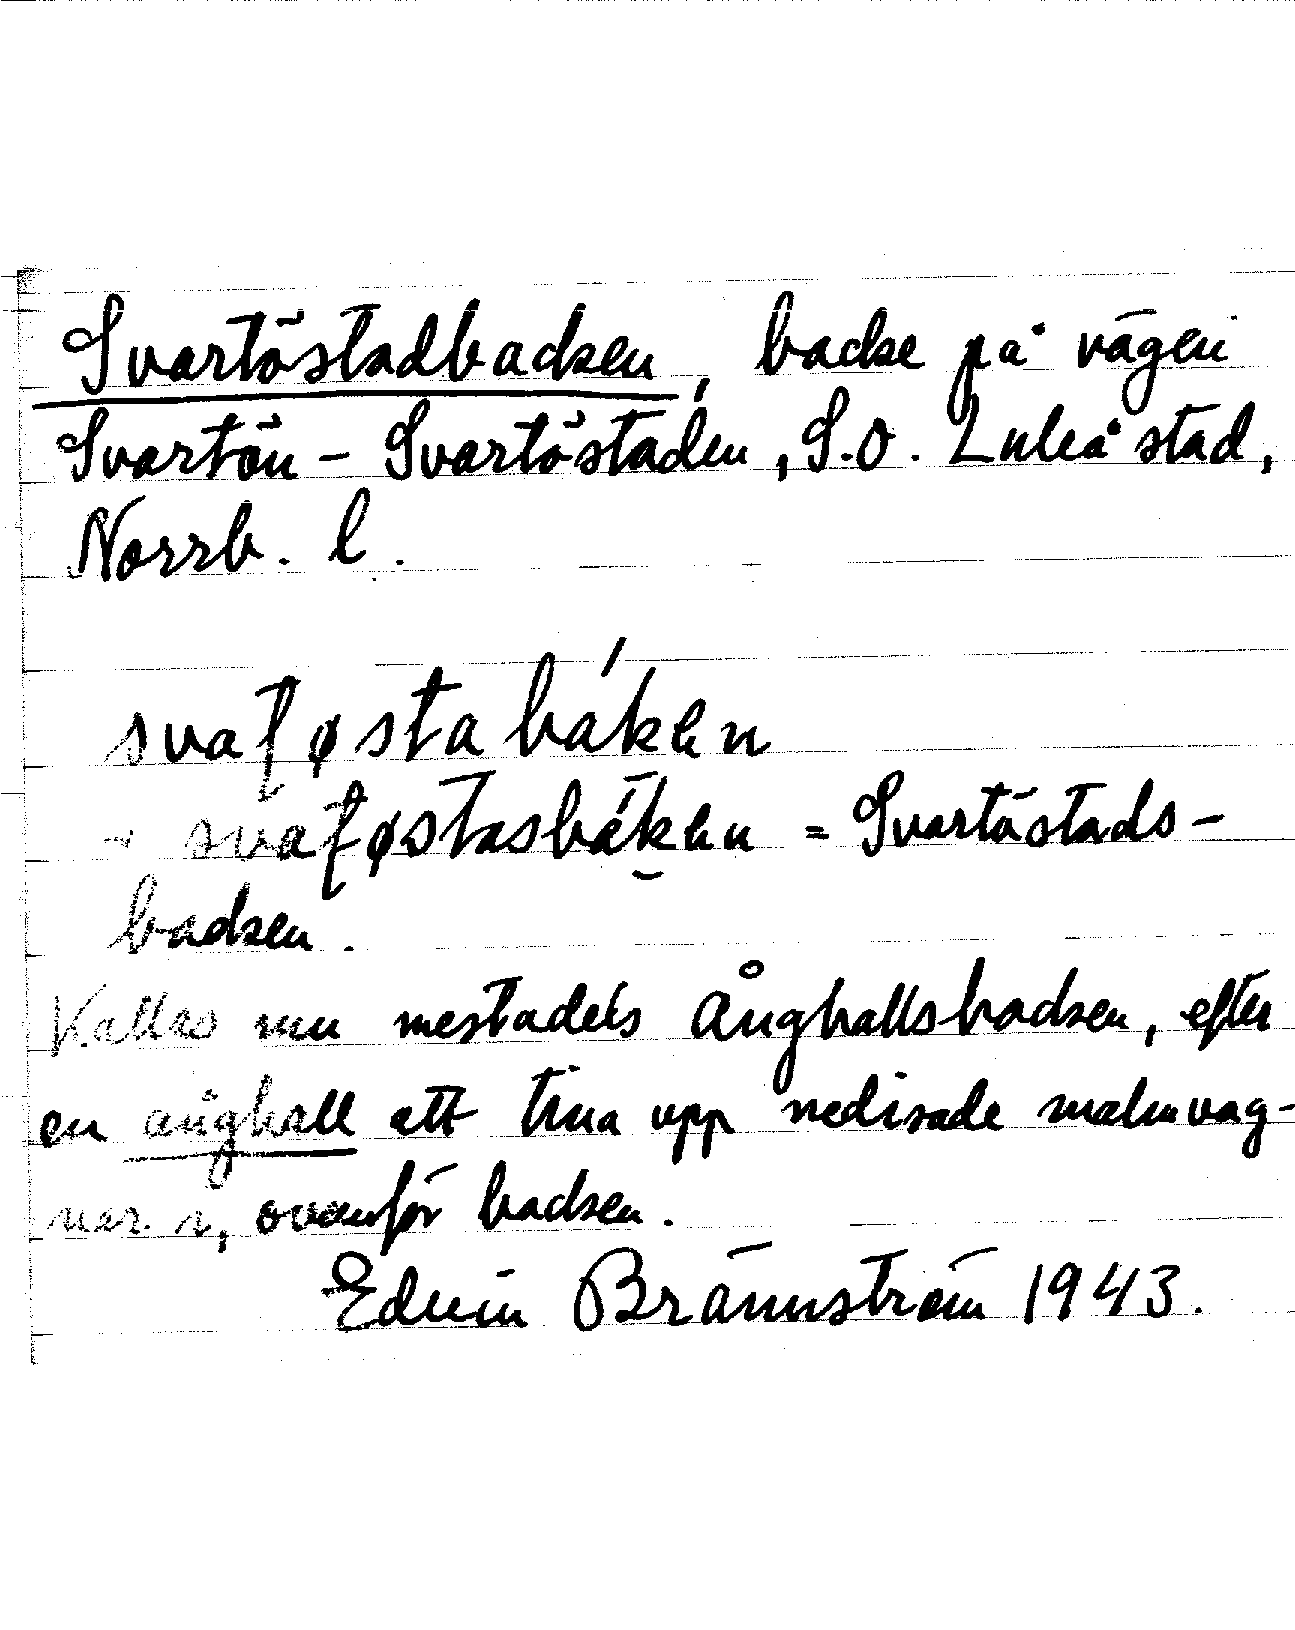 Svartöstadbacken, backe på vägen
Svartön - Svartöstaden, S.O. Luleå stad,
Norrb. l.
svaʈøsta bákɘn
~ svaʈøstasbákɘn = Svartöstads-
backen.
Kallas nu mestadels Ånghallsbacken, efter
en ånghall att tina upp nedisade malmvag-
nar i, ovanför backen.
Edvin Brännström 1943.